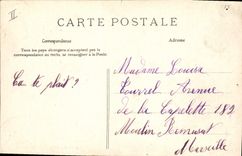 II
CARTE POSTALE
Correspondance
Adresse
Tous les pays étrangers n'acceptent pas la
correspondance au recto, se renseigner à la Poste
Ca te plait ?
Madame Louisa
Tourrel Avenue
de la Capelette 182
Moulin Romusat
Marseille